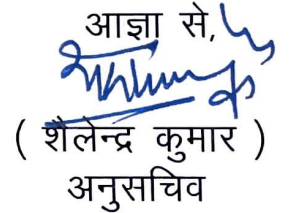 आज्ञा से,
( शैलेन्द्र कुमार )
अनुसचिव